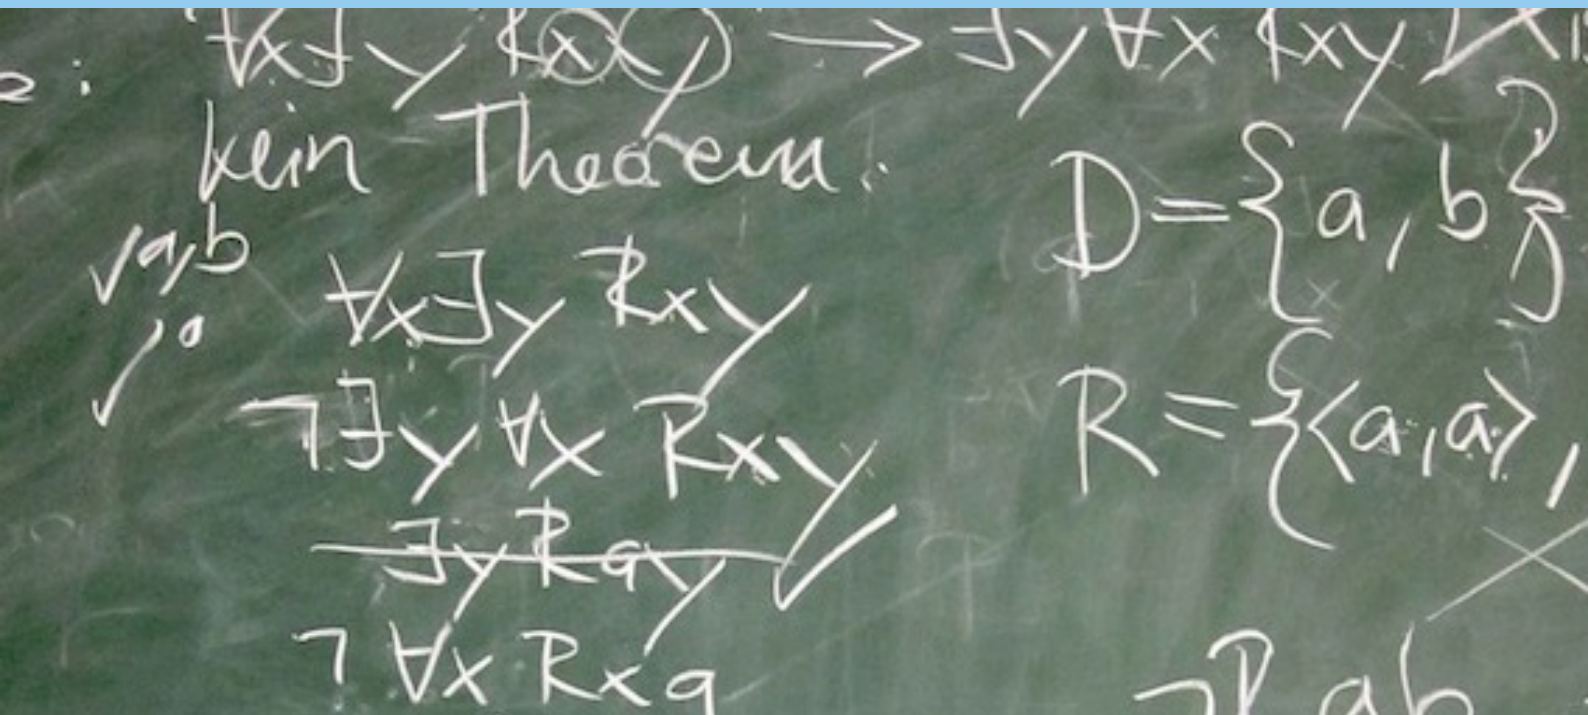 ∀x∃y Rxy → ∃y∀x Rxy
kein Theorem.
√a,b
∀x∃y Rxy
¬∃y∀x Rxy
∃y Ray
¬∀x Rxa
D={a,b}
R={<a,a>,
¬R ab